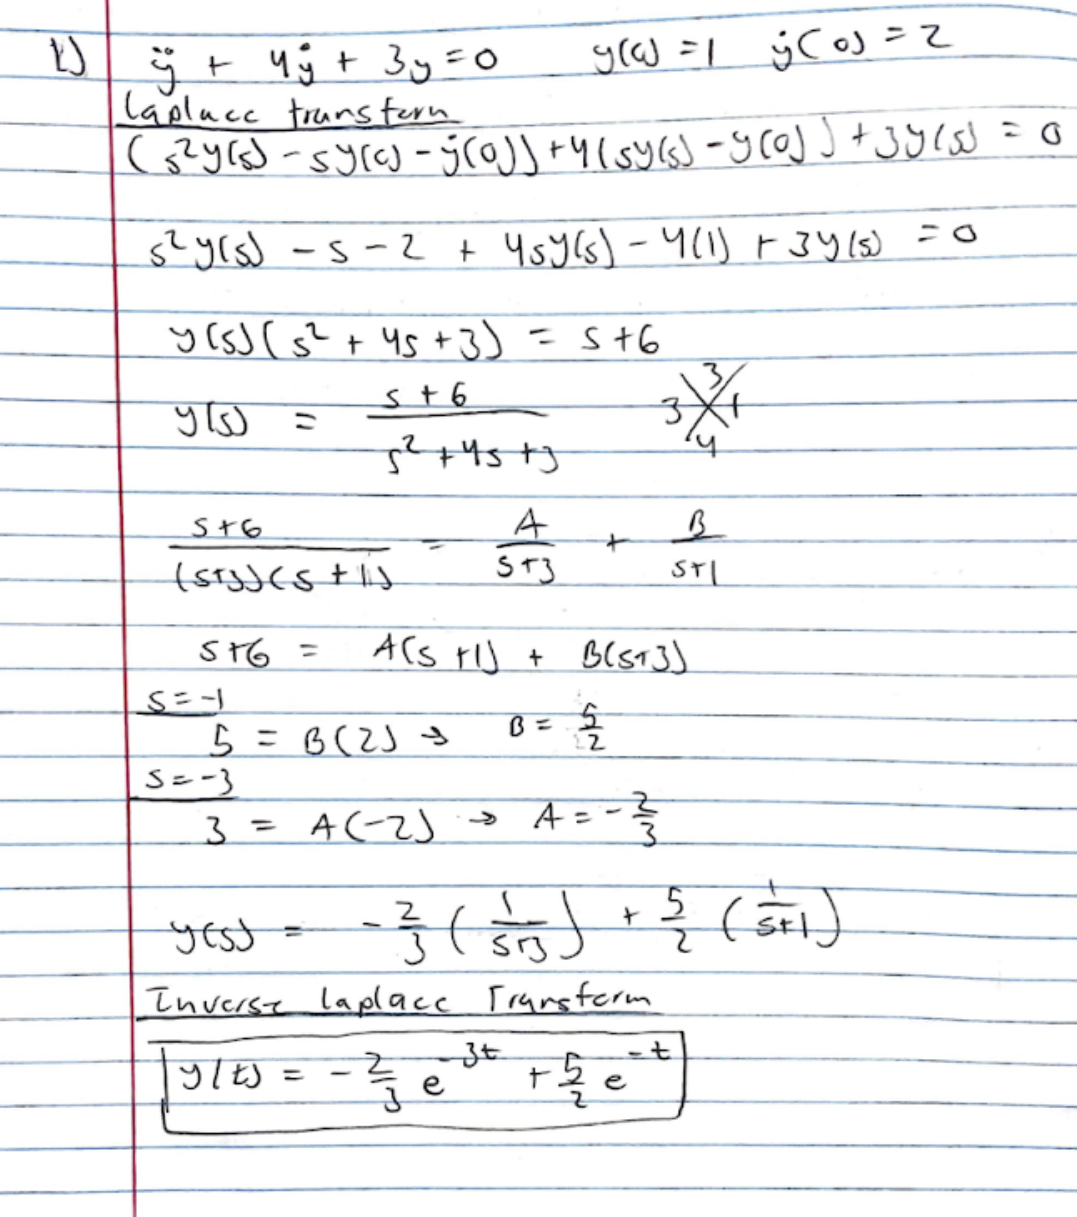 1) ÿ + 4ẏ + 3y = 0 y(0) = 1 ẏ(0) = 2
Laplace transform
(s²y(s) - sy(0) - ẏ(0)) + 4(sy(s) - y(0)) + 3y(s) = 0
s²y(s) - s - 2 + 4sy(s) - 4(1) + 3y(s) = 0
y(s)(s² + 4s + 3) = s + 6
y(s) = (s + 6)/(s² + 4s + 3)
3
3 1
4
(s+6)/((s+3)(s+1)) = A/(s+3) + B/(s+1)
s+6 = A(s+1) + B(s+3)
s = -1
5 = B(2) → B = 5/2
s = -3
3 = A(-2) → A = -2/3
y(s) = -2/3 (1/(s+3)) + 5/2 (1/(s+1))
Inverse Laplace Transform
y(t) = -2/3 e^(-3t) + 5/2 e^(-t)